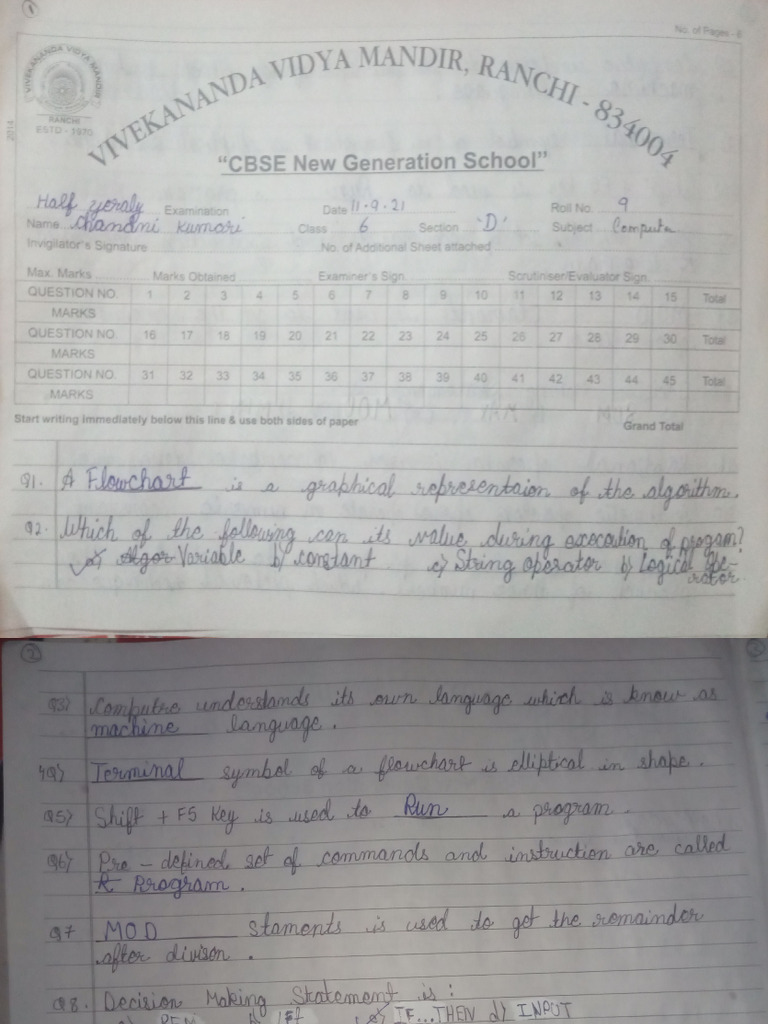 1
No. of Pages - 8
VIVEKANANDA VIDYA MANDIR
RANCHI
ESTD - 1970
2014
VIVEKANANDA VIDYA MANDIR, RANCHI - 834004
"CBSE New Generation School"
Half yeraly Examination Date 11.9.21 Roll No. 9
Name Chandni Kumari Class 6 Section 'D' Subject Computer
Invigilator's Signature No. of Additional Sheet attached
Max. Marks Marks Obtained Examiner's Sign. Scrutiniser/Evaluator Sign.
QUESTION NO. 1 2 3 4 5 6 7 8 9 10 11 12 13 14 15 Total
MARKS
QUESTION NO. 16 17 18 19 20 21 22 23 24 25 26 27 28 29 30 Total
MARKS
QUESTION NO. 31 32 33 34 35 36 37 38 39 40 41 42 43 44 45 Total
MARKS
Start writing immediately below this line & use both sides of paper Grand Total
Q1. A Flowchart is a graphical representaion of the algorithm.
Q2. Which of the following can its value during execution of progam?
a) Variable b) constant c) String operator b) Logical Ope-
rator
2
Q3) Computre understands its own language which is know as
machine language.
4Q) Terminal symbol of a flowchart is elliptical in shape.
Q5) Shift + F5 Key is used to Run a program.
Q6) Pre-defined set of commands and instruction are called
Program.
Q7 MOD staments is used to get the remainder
after divison.
Q8. Decision Making Statement is:
IF...THEN d) INPUT